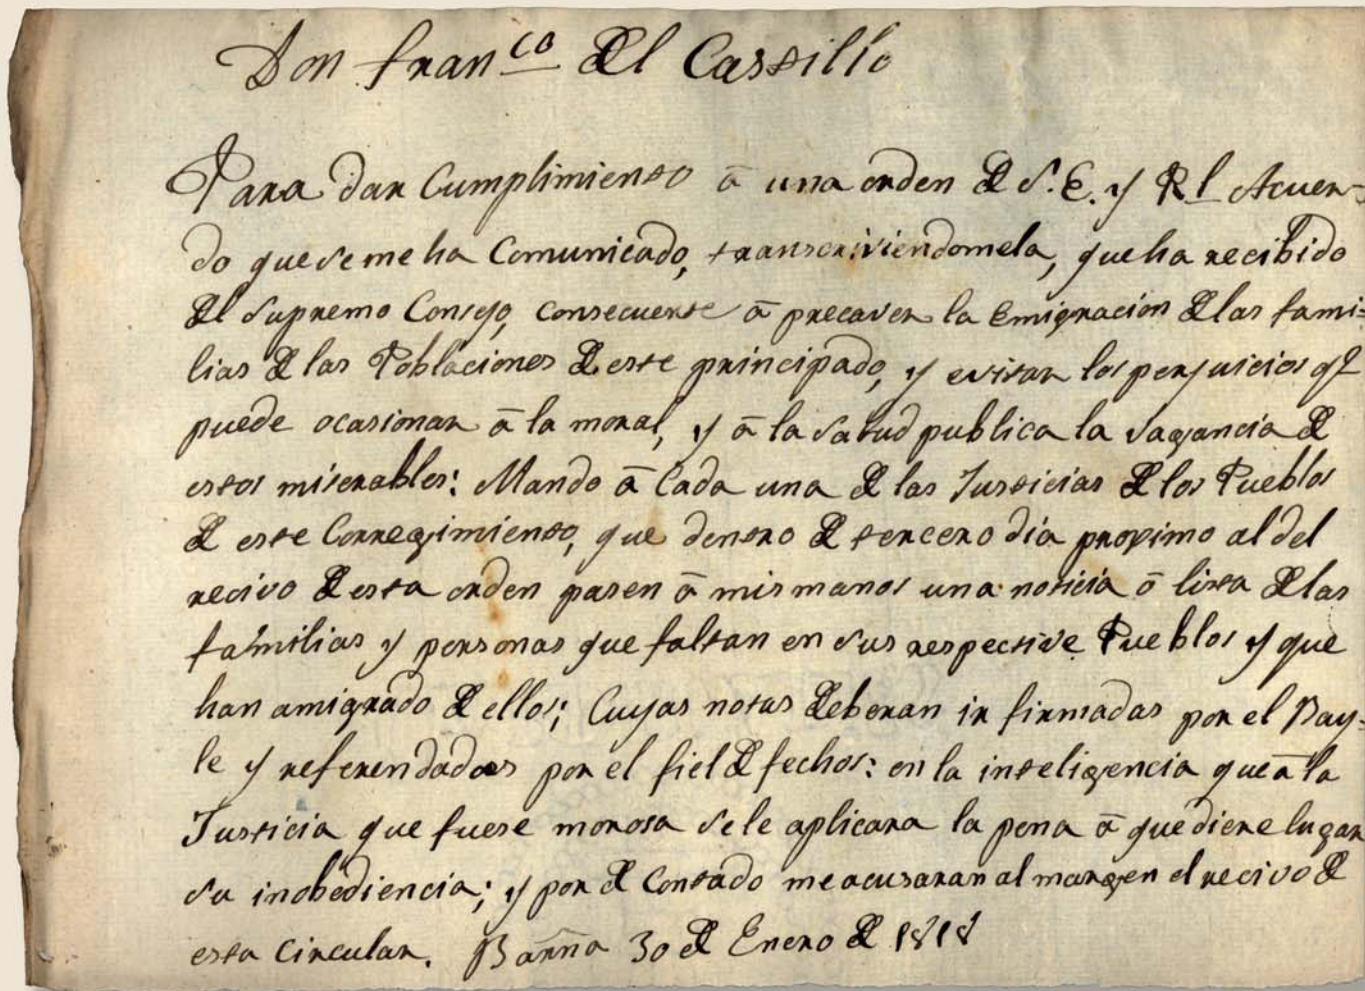 Don Fran.co del Castillo
Para dar Cumplimiento â una orden de S. E. y Rl Acuer-
do que se me ha Comunicado, transcriviendomela, que ha recibido
del Supremo Consejo, consecuente â precaver la Emigracion de las fami-
lias de las Poblaciones de este principado, y evitar los perjuicios q.e
puede ocasionar â la moral, y â la salud publica la vagancia de
estos miserables: Mando â Cada una de las Justicias de los Pueblos
de este Corregimiento, que dentro de tercero dia proximo al del
recivo de esta orden pasen â mis manos una noticia ô lista de las
familias y personas que faltan en sus respective Pueblos y que
han amigrado de ellos; Cuyas notas deberan ir firmadas por el Bay-
le y referendadas por el fiel de fechos: en la inteligencia que â la
Justicia que fuese morosa se le aplicara la pena â que diere lugar
su inobediencia; y por de Contado me acusaran al margen el recivo de
esta Circular. Barña 30 de Enero de 1818